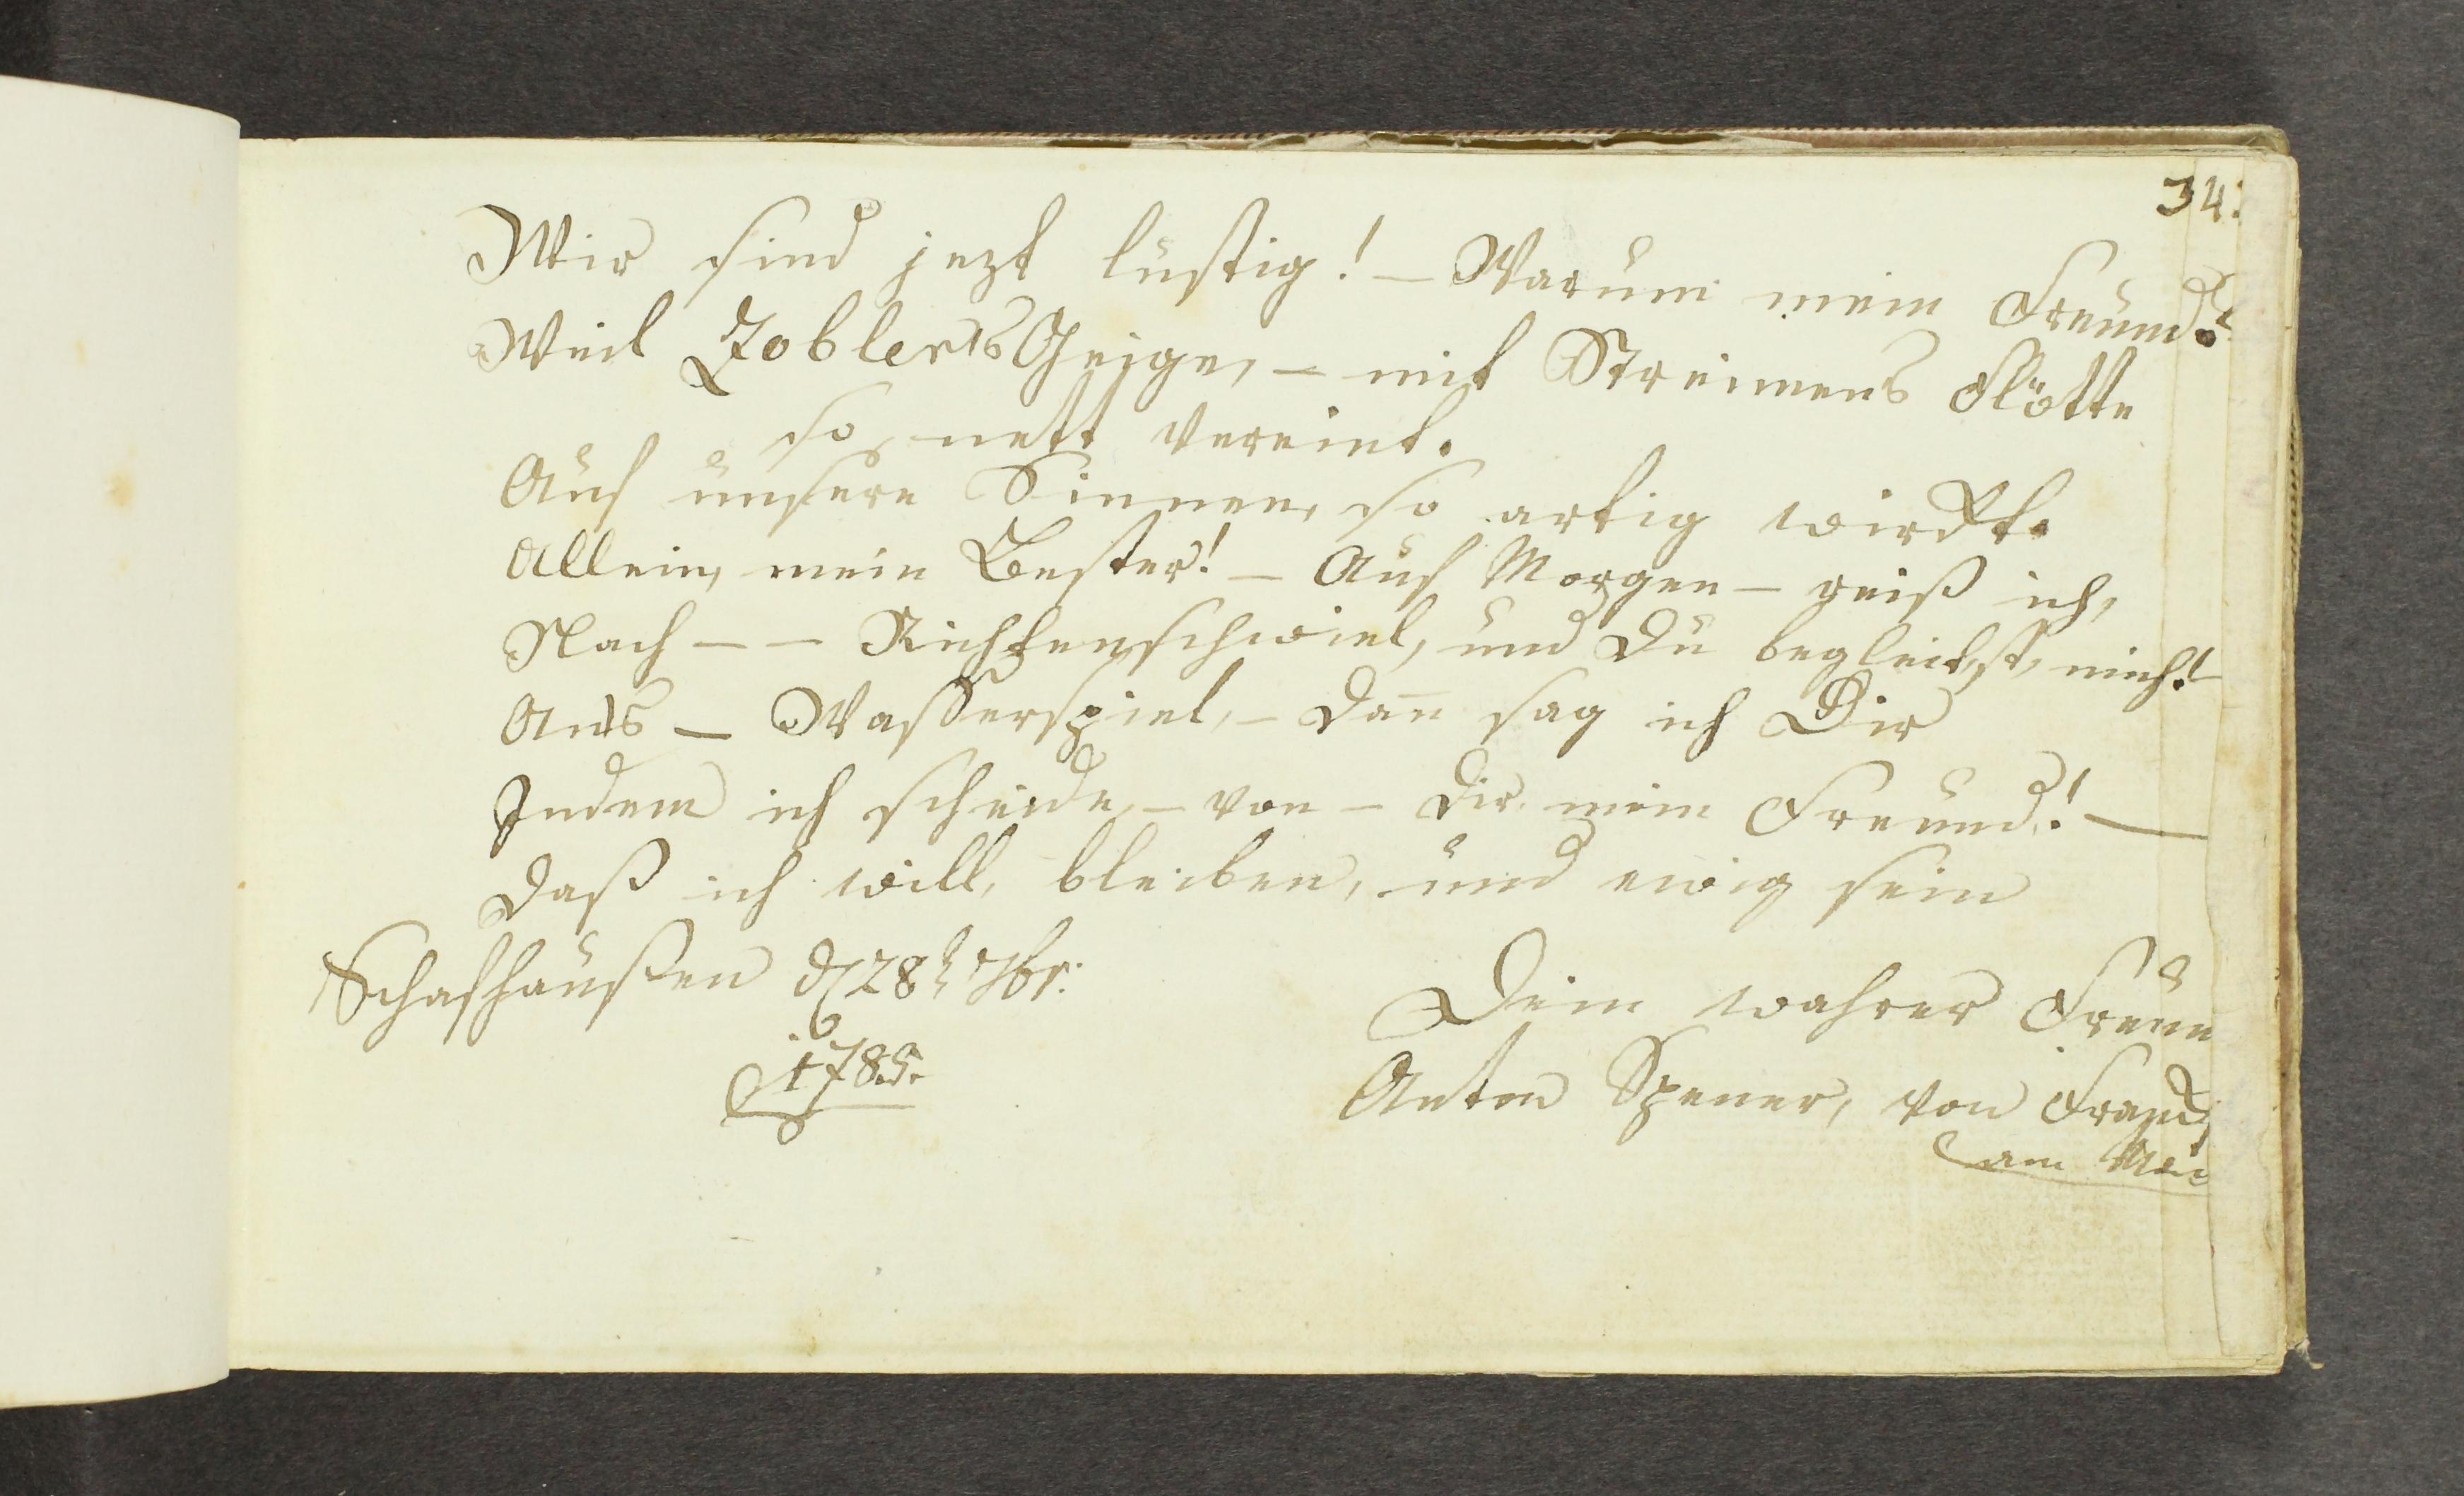 34.
Wir sind jezt lustig! – Warum mein Freund?
Weil Zoblers Geige, – mit Streimens Flötte
so, nett vereint.
Auf unsere Sinnen, so artig wirckt.
Allein, mein Bester! – Auf Morgen – reiß ich,
Nach – – Richtenschwiel, und Du begleitst, mich! –
Ans – Wasserspiel, – Dan̄ sag ich Dir
Indem ich scheide, – von – Dir, mein Freund! –
Daß ich will, bleiben, und ewig sein
Schafhaussen d 28t 7br:
1785.
Dein wahrer Freun
Anton Spener, von Franck
am Mai